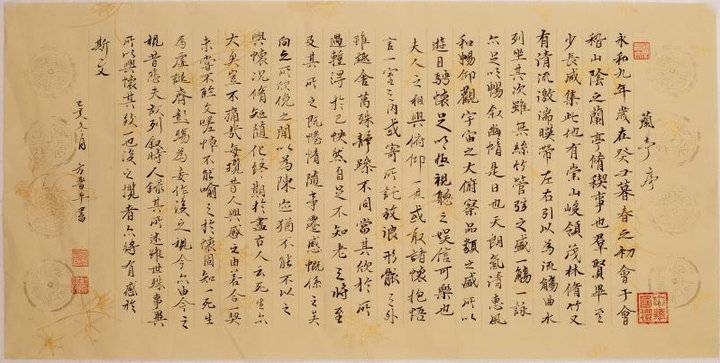 蘭亭序
永和九年歲在癸丑暮春之初會于會
稽山陰之蘭亭脩稧事也羣賢畢至
少長咸集此地有崇山峻領茂林脩竹又
有清流激湍暎帶左右引以為流觴曲水
列坐其次雖無絲竹管弦之盛一觴一詠
亦足以暢叙幽情是日也天朗氣清惠風
和暢仰觀宇宙之大俯察品類之盛所以
遊目騁懷足以極視聽之娛信可樂也
夫人之相與俯仰一世或取諸懷抱悟
言一室之內或寄所託放浪形骸之外
雖趣舍萬殊靜躁不同當其欣於所
遇蹔得於己快然自足不知老之將至
及其所之既惓情隨事遷感慨係之矣
向之所欣俛仰之間以為陳迹猶不能不以之
興懷況脩短隨化終期於盡古人云死生亦
大矣豈不痛哉每攬昔人興感之由若合一契
未嘗不臨文嗟悼不能喻之於懷固知一死生
為虛誕齊彭殤為妄作後之視今亦由今之
視昔悲夫故列叙時人錄其所述雖世殊事異
所以興懷其致一也後之攬者亦將有感於
斯文